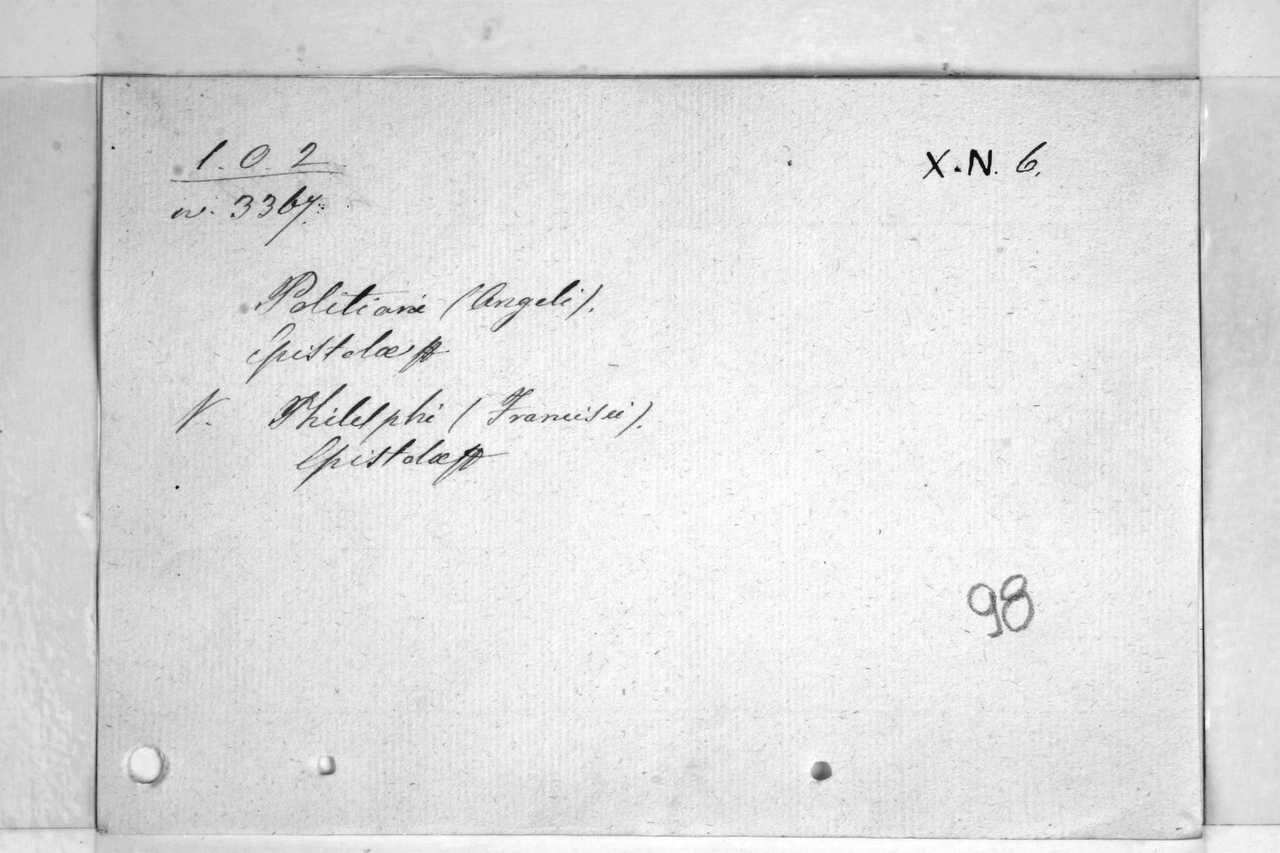 1. O. 2
X.N. 6.
n. 3367.
Politiani (Angeli).
Epistolæ
V. Philelphi (Francisci).
Epistolæ
98